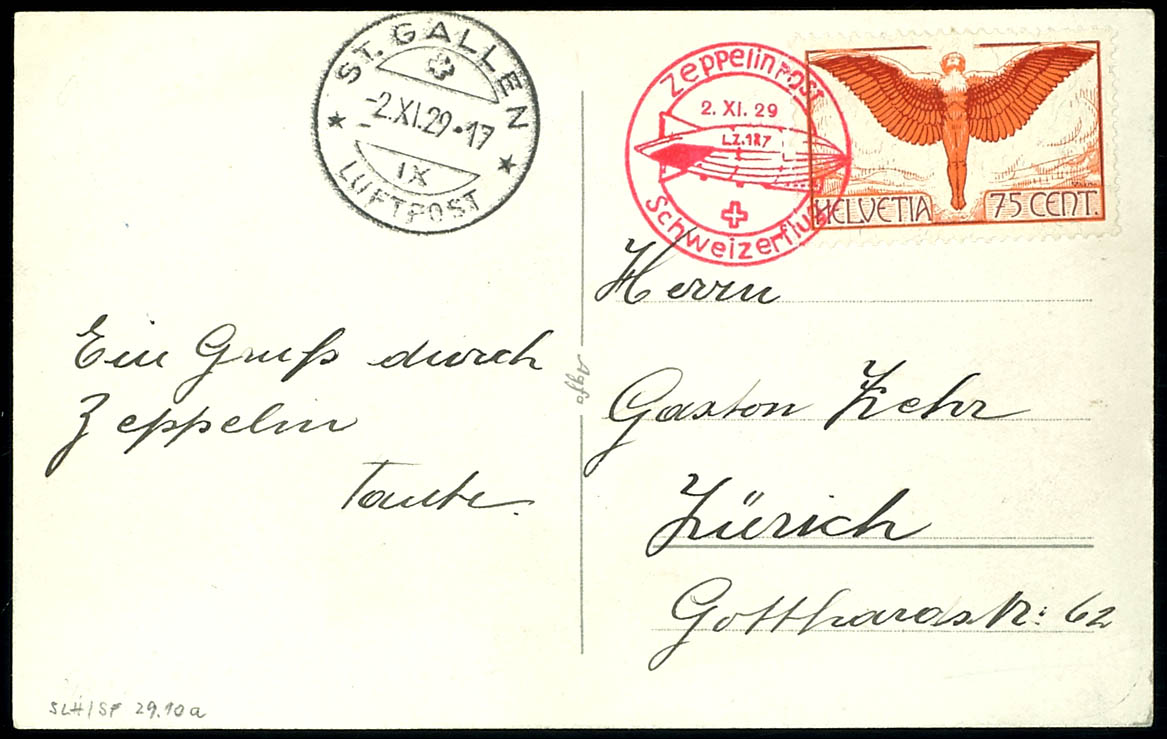 ST. GALLEN
-2.XI.29·17
IX
LUFTPOST
Zeppelinpost
2. XI. 29
L.Z.127
Schweizerflug
HELVETIA 75 CENT.
Ein Gruß durch
Zeppelin
Tante.
Agfa
Herrn
Gaston Zehr
Zürich
Gotthardstr: 62
SLH/SF 29.10a